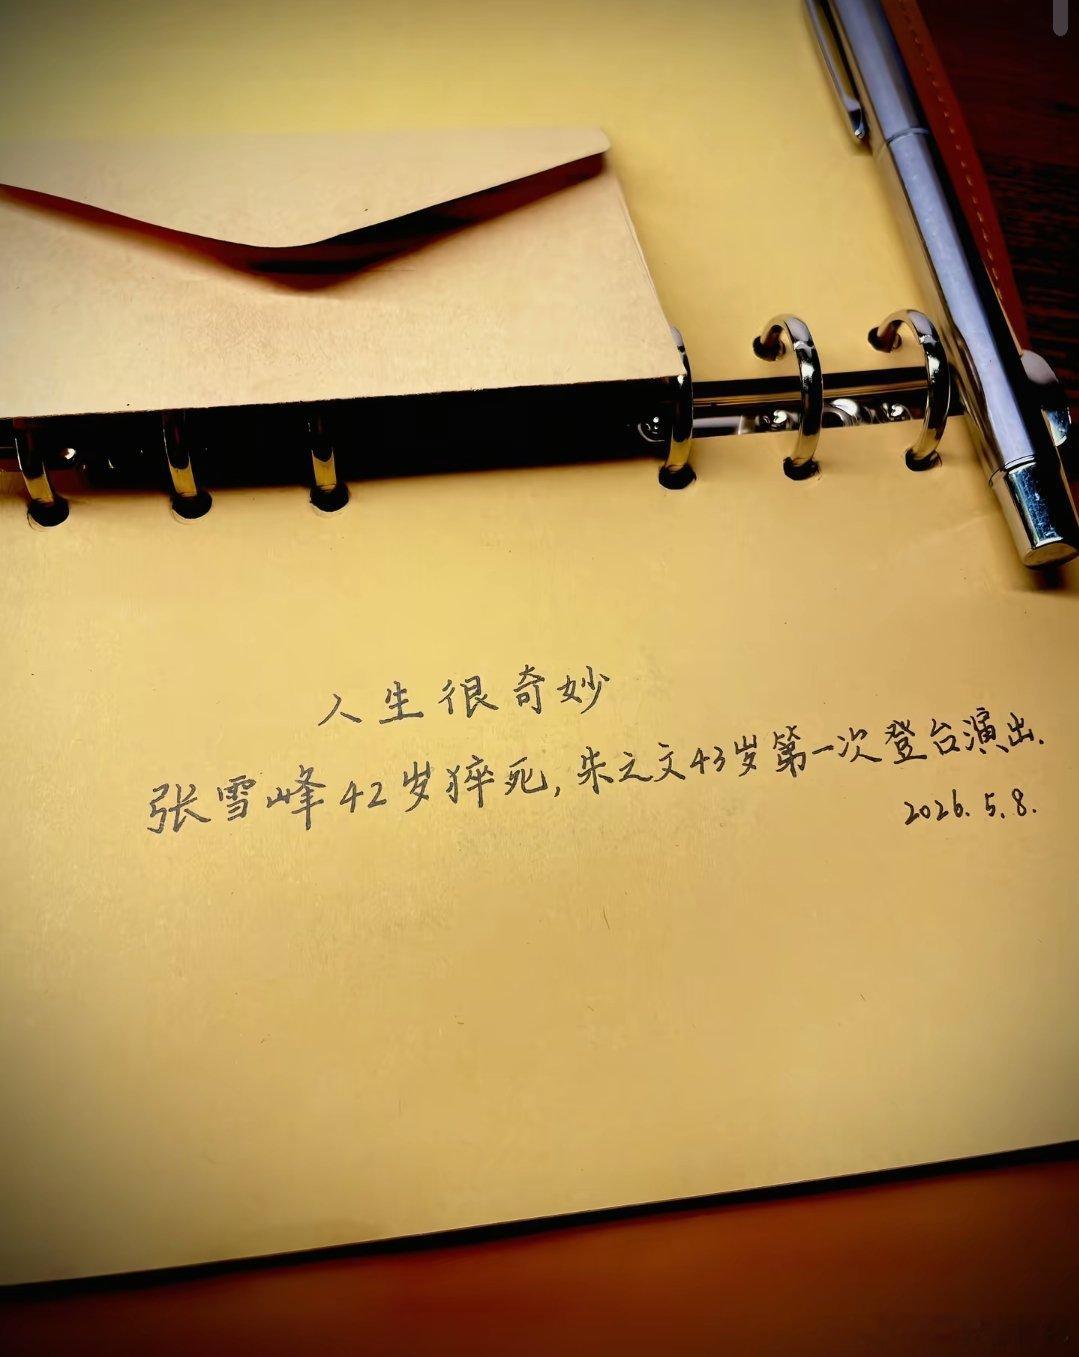 人生很奇妙
张雪峰42岁猝死,朱之文43岁第一次登台演出.
2026.5.8.